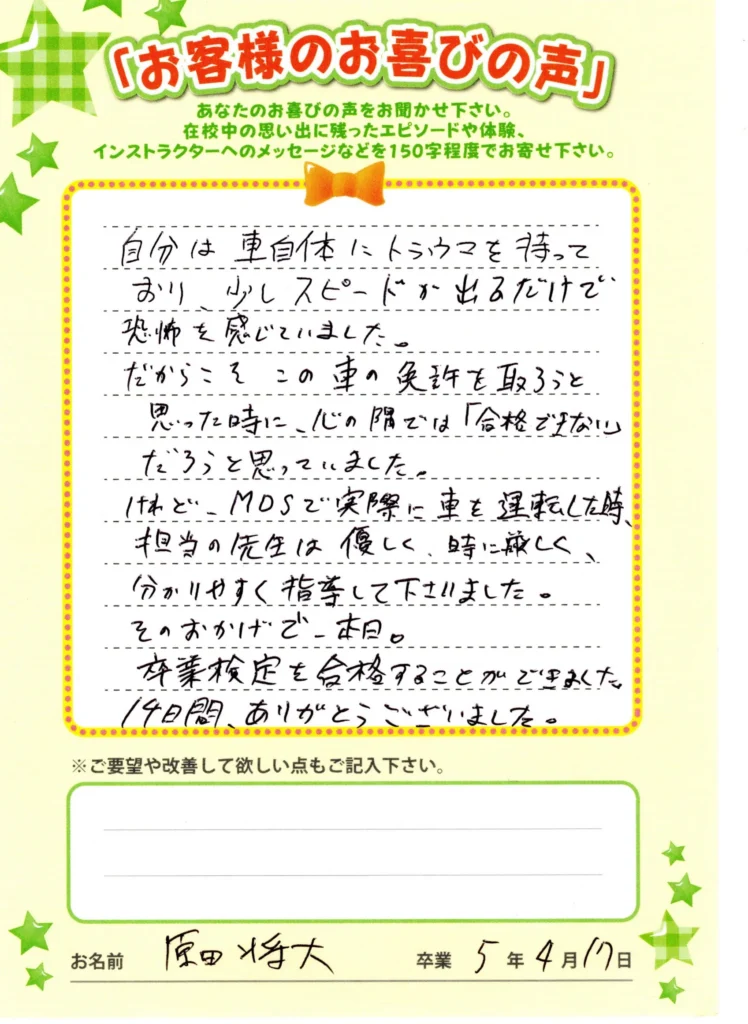 「お客様のお喜びの声」
あなたのお喜びの声をお聞かせ下さい。
在校中の思い出に残ったエピソードや体験、
インストラクターへのメッセージなどを150字程度でお寄せ下さい。
自分は車自体にトラウマを持って
おり、少しスピードが出るだけで
恐怖を感じていました。
だからこそこの車の免許を取ろうと
思った時に、心の隅では「合格できない」
だろうと思っていました。
けれど、MDSで実際に車を運転した時、
担当の先生は優しく、時に厳しく、
分かりやすく指導して下さいました。
そのおかげで本日。
卒業検定を合格することができました。
14日間、ありがとうございました。
※ご要望や改善して欲しい点もご記入下さい。
お名前 原田将大 卒業 5年4月17日